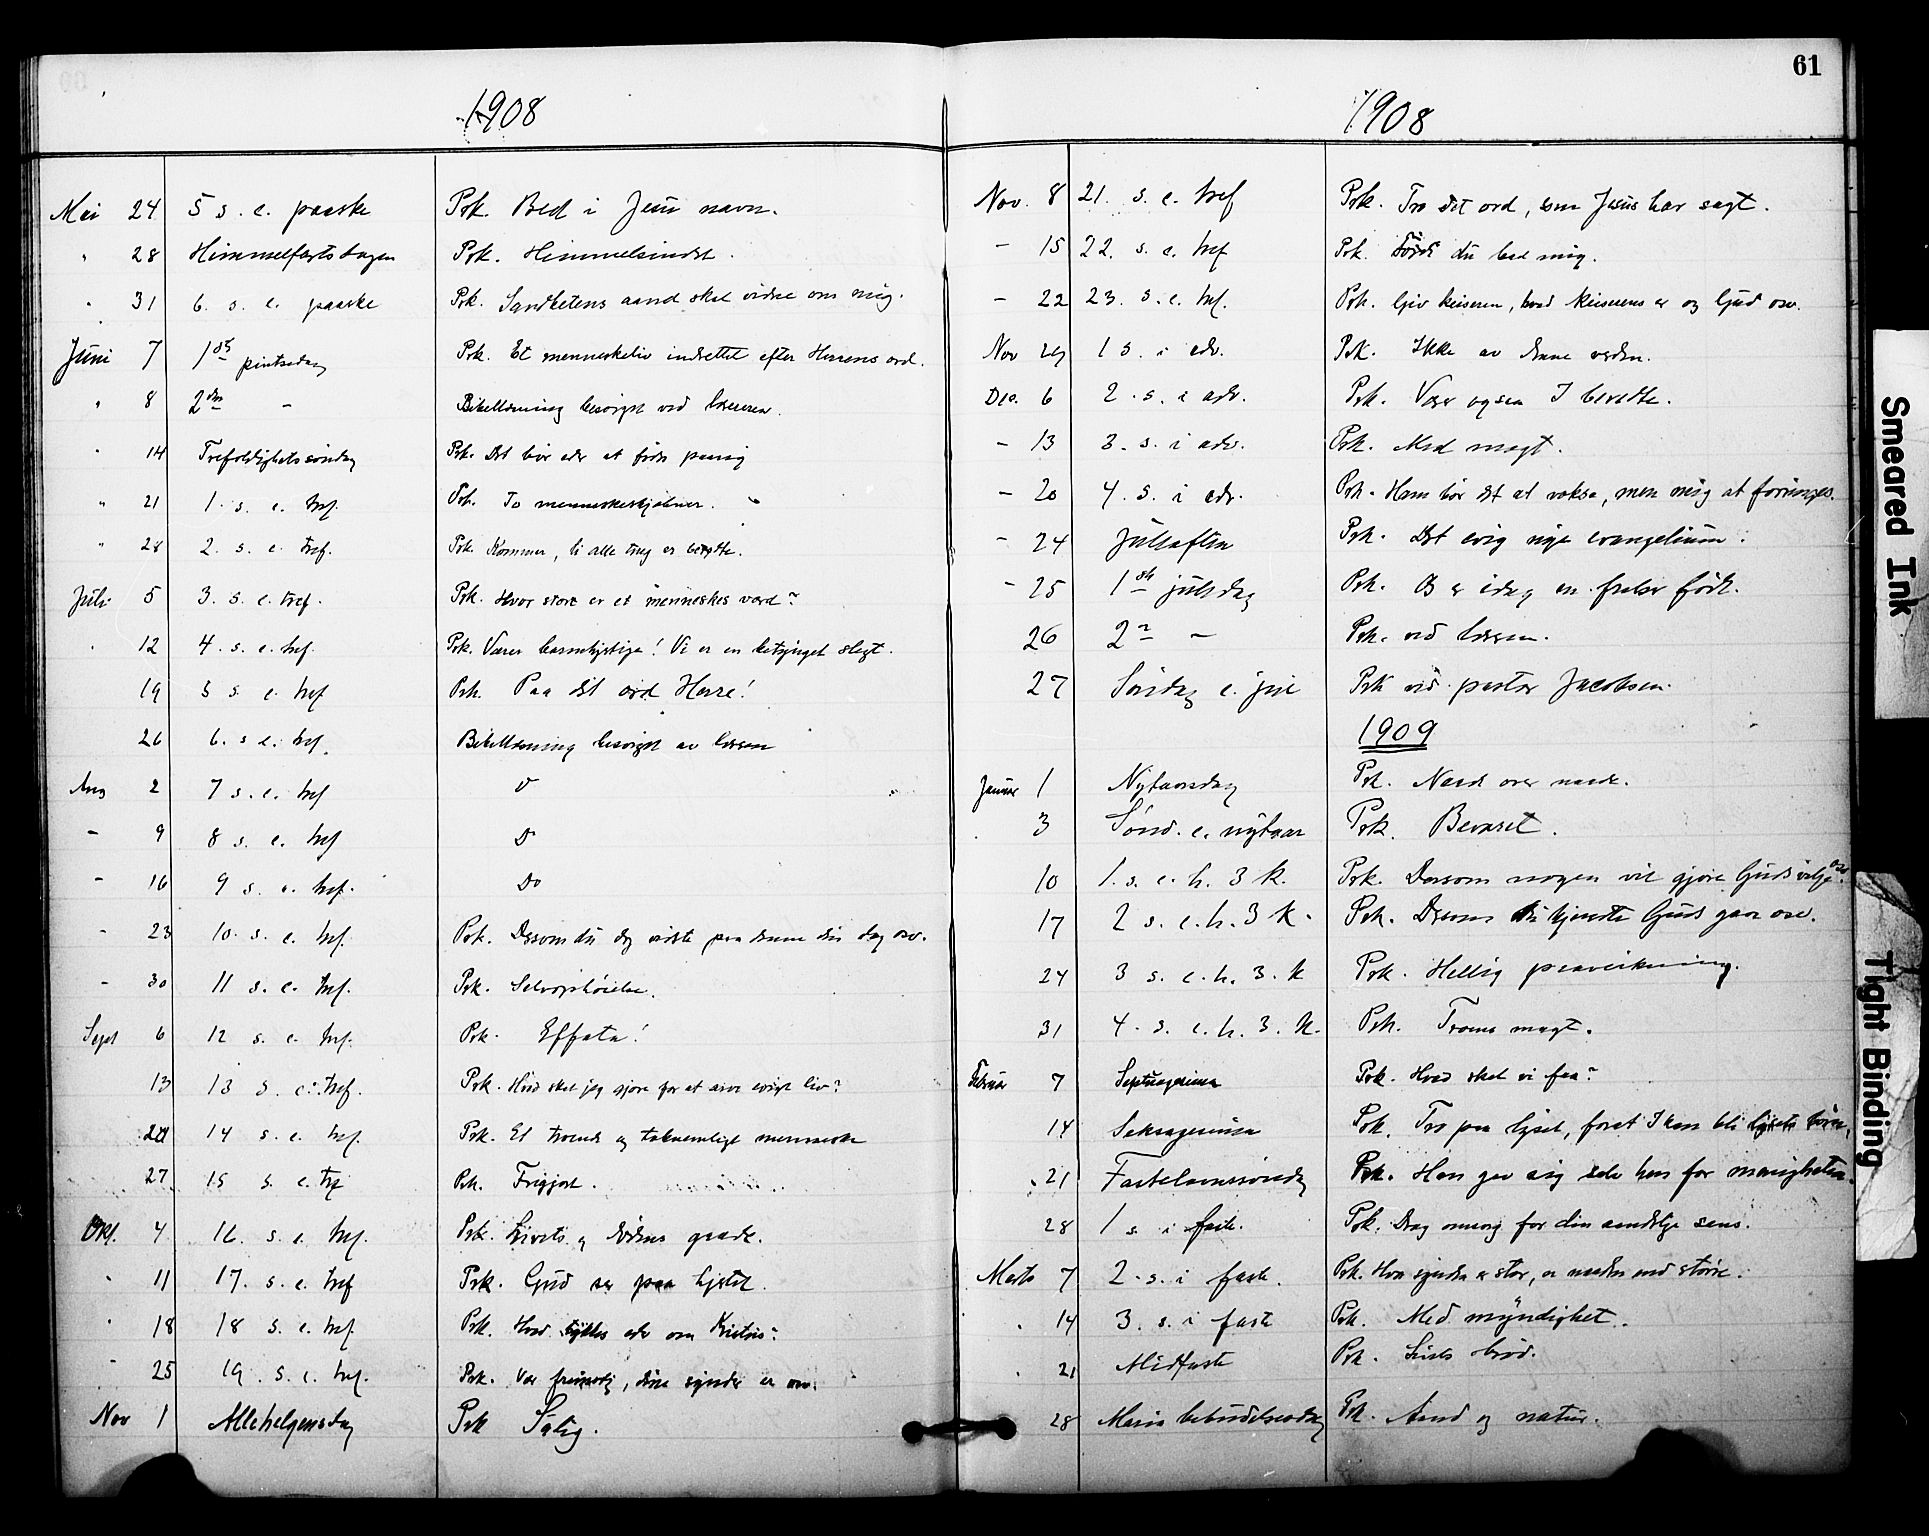 61
1908
Mai 24 5 s. e. paaske Prk. Bed i Jesu navn.
" 28 Himmelfartsdagen Prk. Himmelsindet.
" 31 6. s. e. paaske Prk. Sandhetens aand skal vidne om mig.
Juni 7 1ste pintsedag Prk. Et menneskeliv indrettet efter Herrens ord.
" 8 2den - Bibellæsning besørget ved læreren.
" 14 Trefoldighetssøndag Prk. Det bør eder at fødes paany
" 21 1. s. e. tref. Prk. To menneskeskjæbner.
" 28 2. s. e. tref. Prk. Kommer, ti alle ting er beredte.
Juli 5 3. s. e. tref. Prk. Hvor stort er et menneskes værd?
" 12 4. s. e. tref. Prk. Værer barmhjertige! Vi er en betynget slegt.
19 5 s. e. tref Prk. Paa dit ord Herre!
26 6. s e. tref. Bibellæsning besørget av læreren
Aug 2 7 s. e. tref D
- 9 8 s. e. tref Do
- 16 9 s. e. tref. Do
- 23 10. s. e. tref. Prk. Dersom du dog vidste paa denne din dag osv.
- 30 11 s. e. tref. Prk. Selvophøielse.
Sept 6 12 s. e. tref. Prk. Effata!
13 13 s. e. tref. Prk. Hvad skal jeg gjøre for at arve evigt liv?
20 14 s. e. tref. Prk. Et troende og taknemligt menneske
27 15 s. e. tref Prk. Frigjort.
Okt. 4 16. s. e. tref. Prk. Livets og dødens gaade.
" 11 17. s. e. tref Prk. Gud ser paa hjertet.
" 18 18 s. e. tref. Prk. Hvad tykkes eder om Kristus?
- 25 19. s. e. tref. Prk. Vær frimodig, dine synder er osv.
Nov 1 Allehelgensdag Prk Salig.
1908
Nov. 8 21. s. e. tref Prk. Tro det ord, som Jesus har sagt.
- 15 22. s. e. tref Prk. du bad mig.
- 22 23. s. e. tref. Prk. Giv keiseren, hvad keiserens er og Gud osv.
Nov 29 1 s. i adv. Prk. Ikke av denne verden.
Dec. 6 2. s. i adv. Prk. Vær ogsaa I beredte.
- 13 3. s. i adv. Prk. Med magt.
- 20 4. s. i adv. Prk. Ham bør det at vokse, men mig at forringes.
- 24 Julaften Prk. Det evig nye evangelium.
- 25 1ste juledag Prk. Os er idag en frelser født.
26 2n - Prk. ved læreren.
27 Søndag e. jul Prk ved pastor Jacobsen
1909
Januar 1 Nytaarsdag Prk. Naade over naade.
3 Sønd. e. nytaar Prk. Bevaret.
10 1. s. e. h. 3 k. Prk. Dersom nogen vil gjøre Guds vilje osv.
17 2 s. e. h. 3 k. Prk. Dersom du kjendte Guds gave osv.
24 3 s. e. h. 3. k Prk. Hellig paavirkning.
31 4. s. e. h. 3. k. Prk. Troens magt.
Februar 7 Septuagesima Prk. Hvad skal vi faa?
14 Seksagesima Prk. Tro paa lyset, forat I kan bli lysets børn.
21 Fastelavnssøndag Prk. Han gav sig selv hen for menigheten.
28 1 s. i faste. Prk. Drag omsorg for din aandelige sans.
Marts 7 2. s. i faste. Prk. Hvor synden er stor, er naaden end større.
14 3. s. i faste Prk. Med myndighet.
21 Midfaste Prk. Livets brød.
28 Maria bebudelsesdag Prk. Aand og natur.
Smeared Ink
Tight Binding